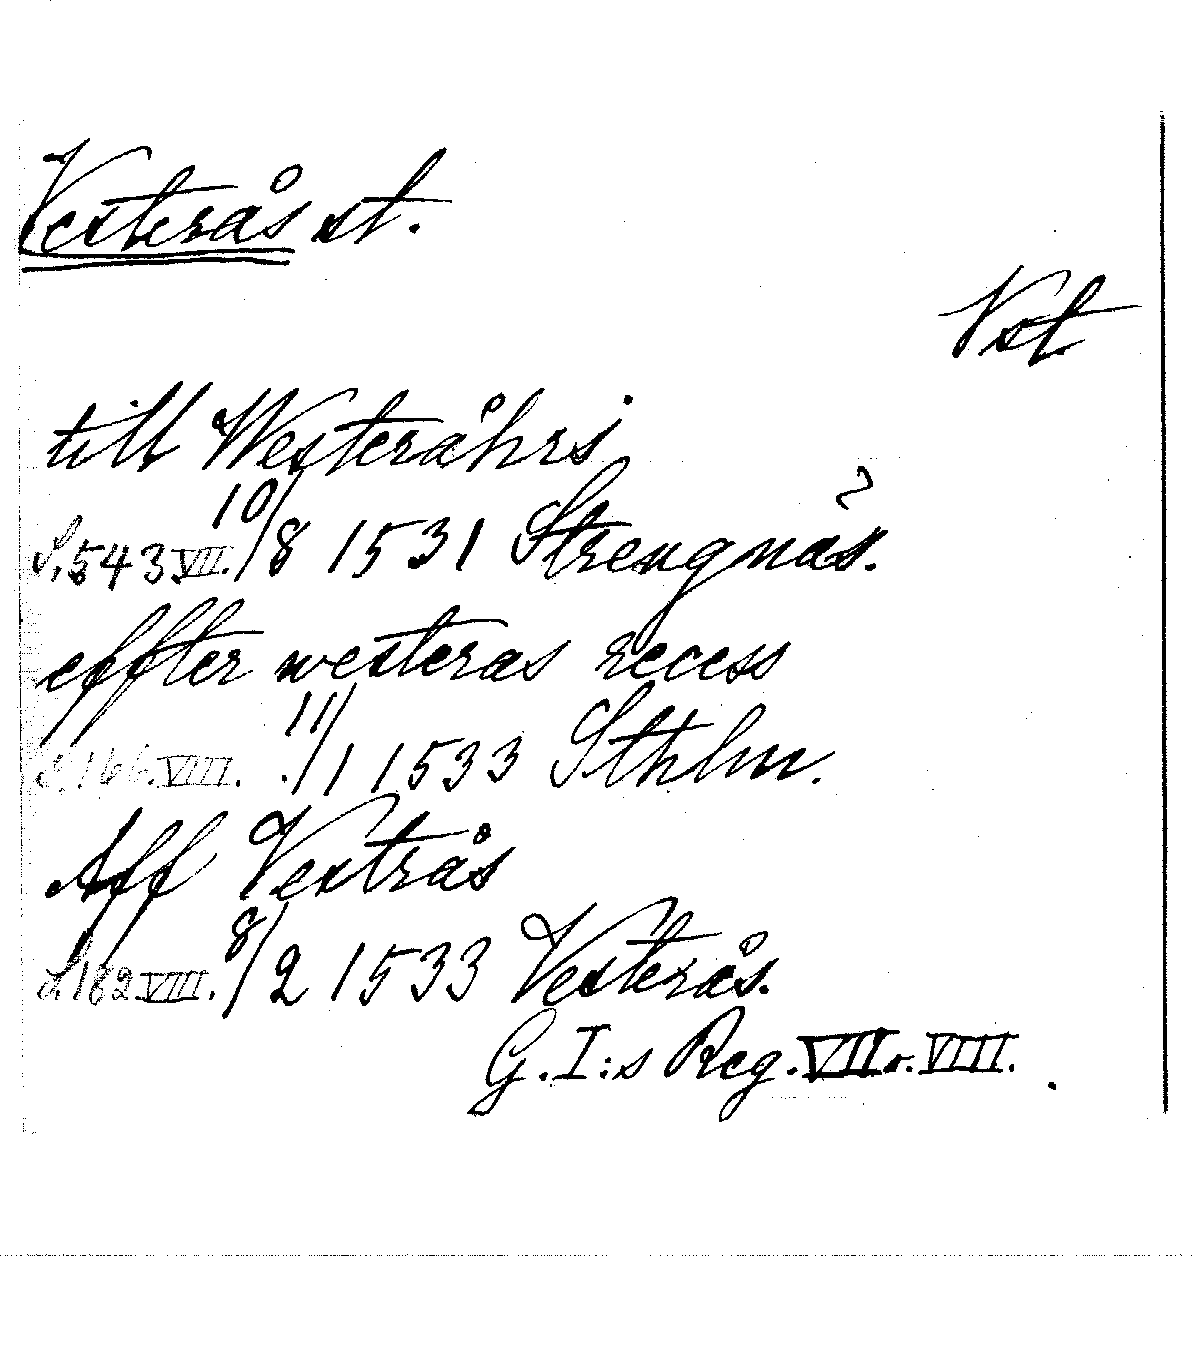 Vesterås st.
Vst
till Westeråhrs
S. 543 VII. 10/8 1531 Strengnäs.
effter westeras recess
S. 166. VIII. 11/1 1533 Sthlm.
Aff Vestrås
S. 182 VIII. 8/2 1533 Vesterås.
G. I:s Reg. VII o. VIII.